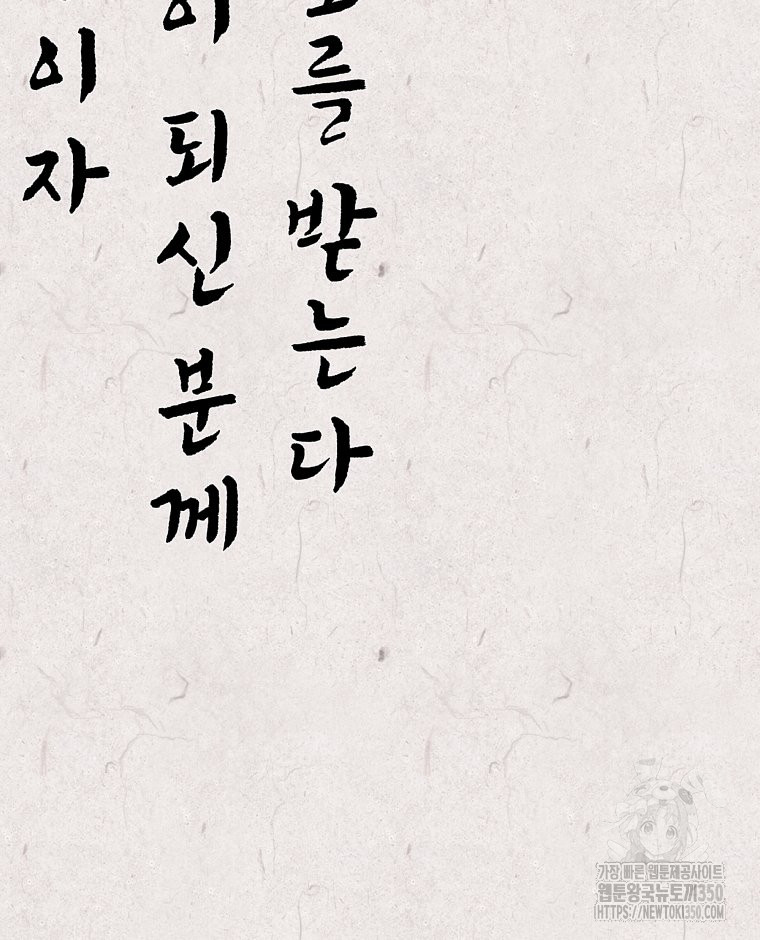 를 받는다
이 되신 분께
이자
가장 빠른 웹툰제공사이트
웹툰왕국뉴토끼350
HTTPS://NEWTOKI350.COM